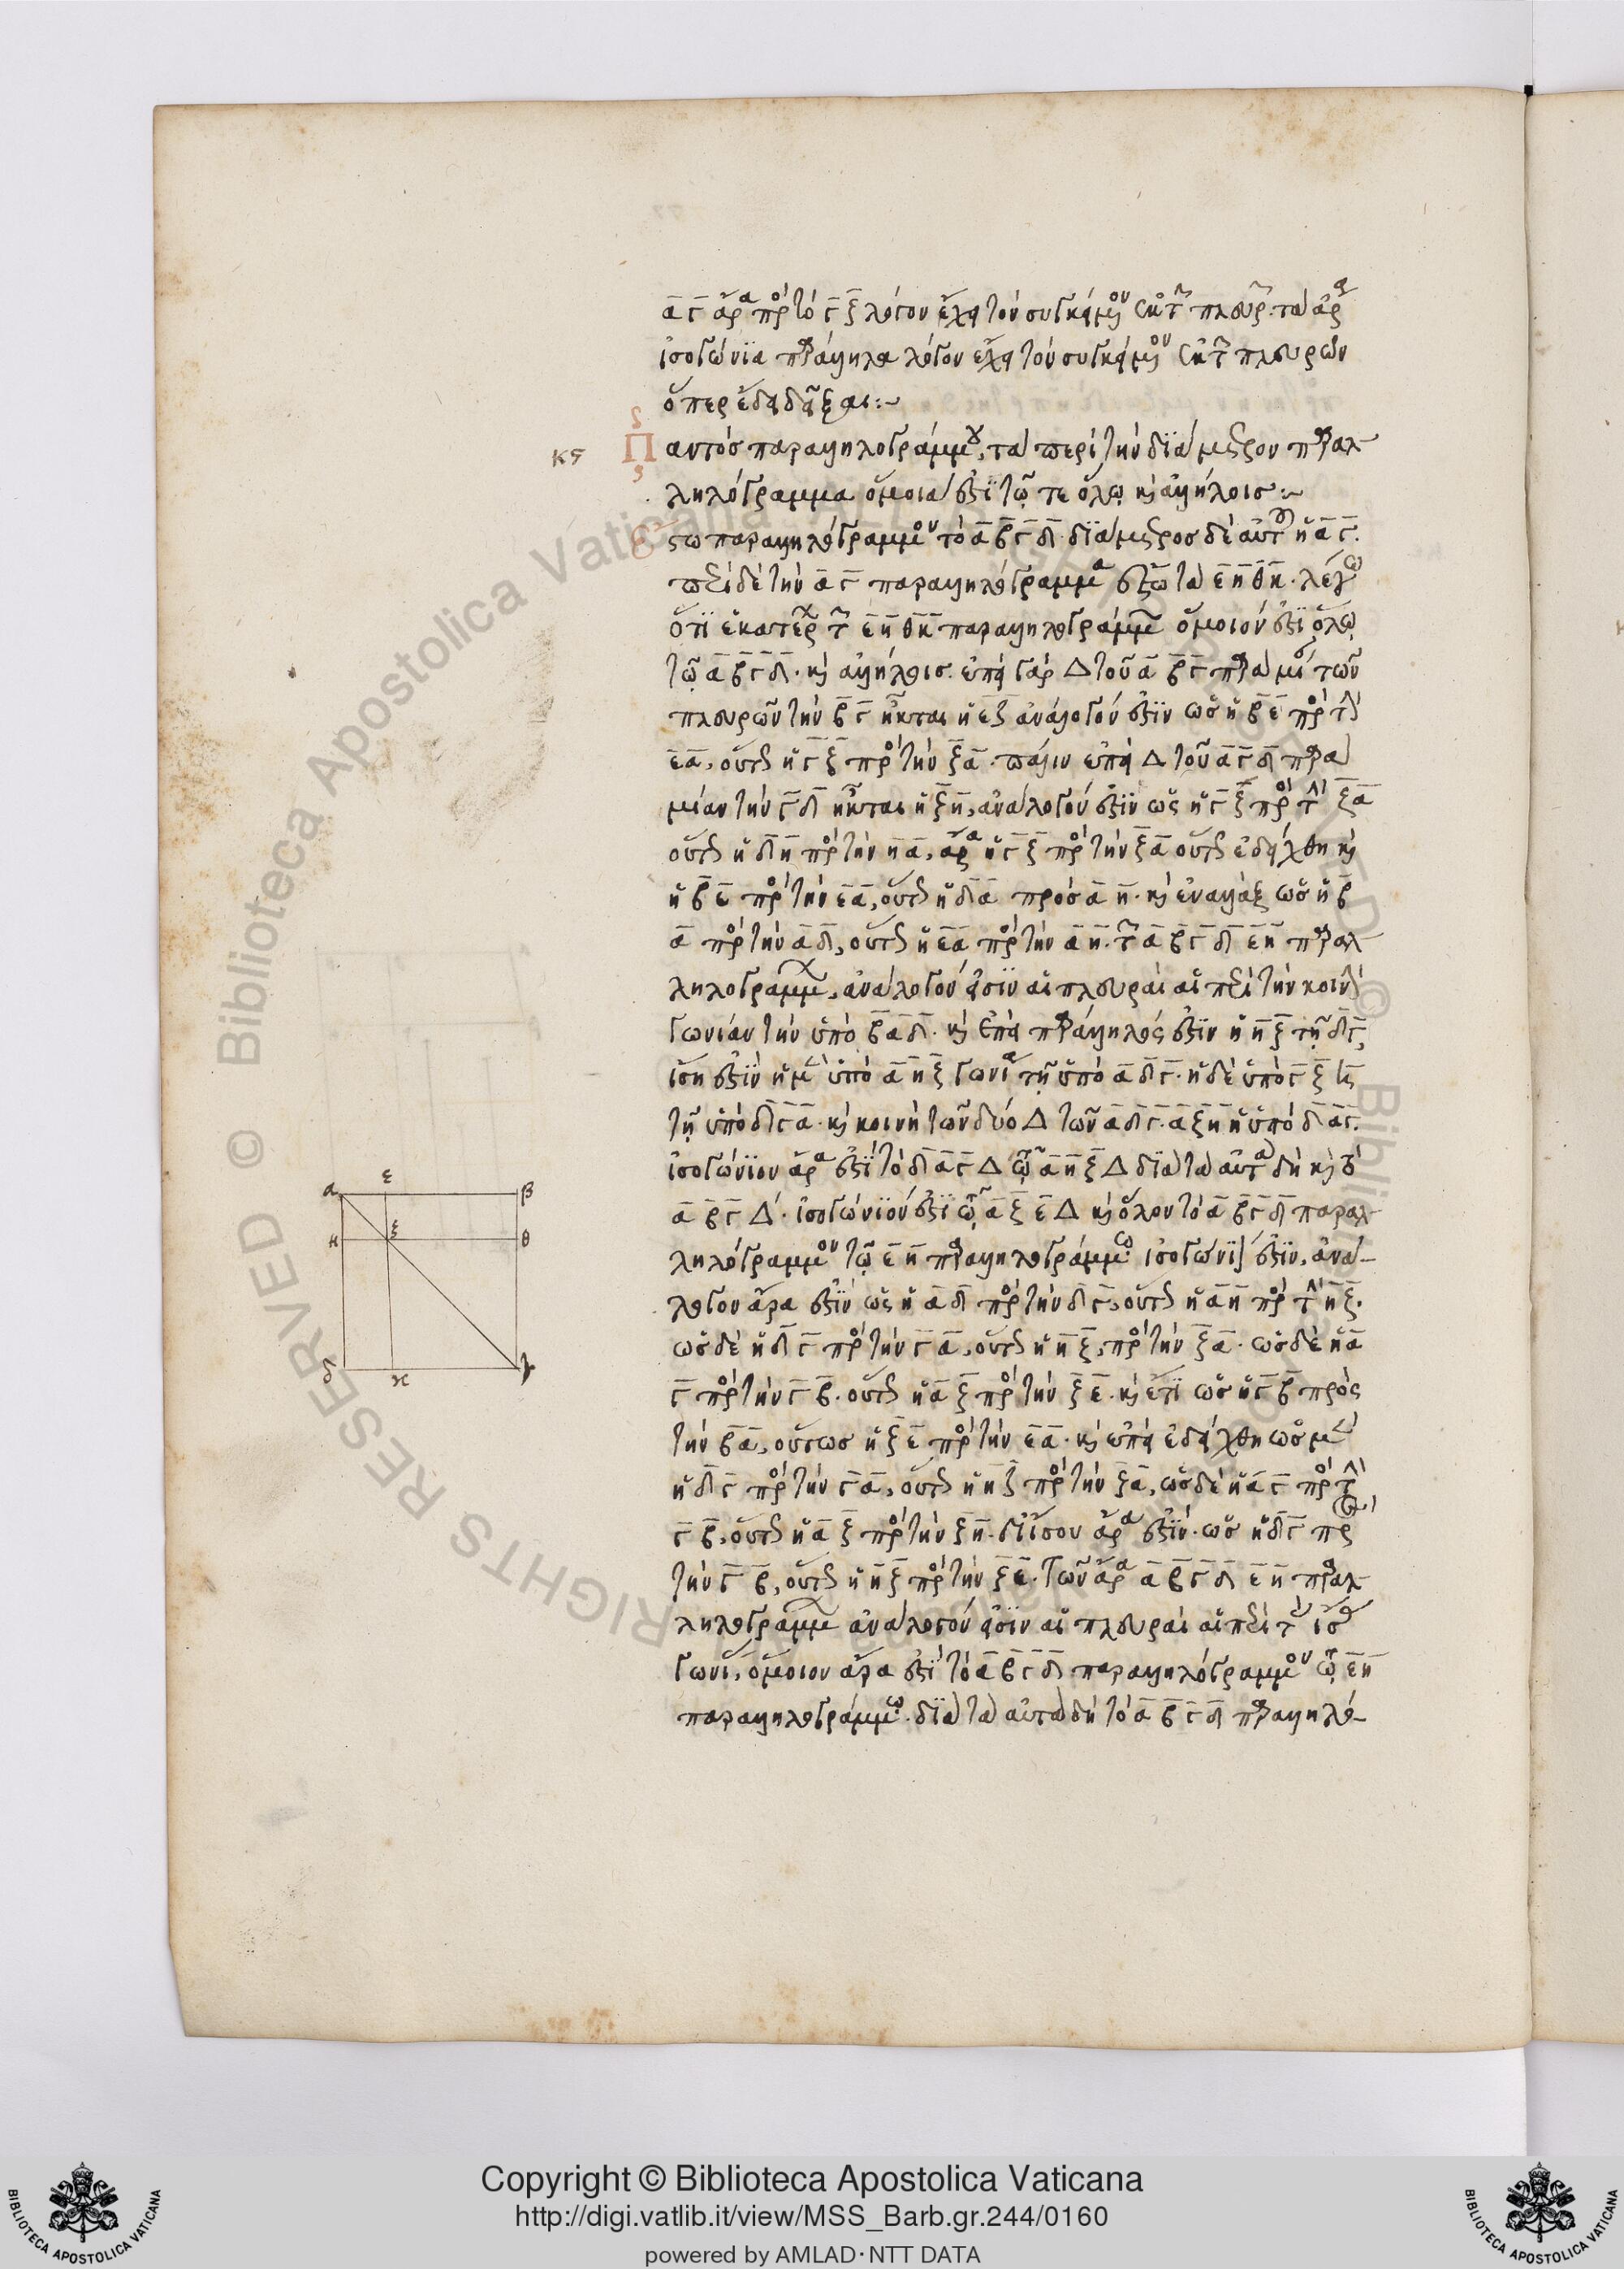 α̅γ̅ ἄρα πρὸς τὸ γ̅ξ̅ λόγον ἔχει τὸν συγκείμενον ἐκ τῶν πλευρῶν· τὰ ἄρα
ἰσογώνϊα παράλληλα λόγον ἔχει τὸν συγκείμενον ἐκ τῶν πλευρῶν
ὅπερ ἔδει δεῖξαι:~
κϛ Παντὸς παραλληλογράμμου, τὰ περὶ τὴν δϊάμετρον παραλ-
ληλόγραμμα ὅμοια ἐστὶ τῷ τε ὅλῳ καὶ ἀλλήλοις:~
Ἔστω παραλληλόγραμμον τὸ α̅β̅γ̅δ̅· δϊάμετρος δὲ αὐτοῦ ἡ α̅γ̅·
περὶ δὲ τὴν α̅γ̅ παραλληλόγραμμα ἔστω τὰ ε̅η̅ θ̅κ̅· λέγω
ὅτϊ ἑκάτερον τῶν ε̅η̅ θ̅κ̅ παραλληλογράμμων ὅμοιόν ἐστϊ ὅλῳ
τῷ α̅β̅γ̅δ̅· καὶ ἀλλήλοις. ἐπεὶ γὰρ Δ τοῦ α̅β̅γ̅ παρὰ μίαν τῶν
πλευρῶν τὴν β̅γ̅ ἦκται ἡ ε̅ξ̅ ἀνάλογόν ἐστϊν ὡς ἡ β̅ε̅ πρὸς τὴν
ε̅α̅, οὕτως ἡ γ̅ξ̅ πρὸς τὴν ξ̅α̅· πάλιν ἐπεὶ Δ τοῦ α̅γ̅δ̅ παρὰ
μίαν τὴν γ̅δ̅ ἦκται ἡ ξ̅η̅, ἀνάλογόν ἐστϊν ὡς ἡ γ̅ξ̅ πρὸς τὴν ξ̅α̅
οὕτως ἡ δ̅η̅ πρὸς τὴν η̅α̅, ἄρα ἡ γ̅ξ̅ πρὸς τὴν ξ̅α̅ οὕτως ἐδείχθη καὶ
ἡ β̅ε̅ πρὸς τὴν ε̅α̅, οὕτως ἡ δ̅α̅ πρὸς α̅η̅· καὶ ἐναλλὰξ ὡς ἡ β̅
α̅ πρὸς τὴν α̅δ̅, οὕτως ἡ ε̅α̅ πρὸς τὴν α̅η̅· τῶν α̅β̅γ̅δ̅ ε̅η̅ παραλ-
ληλογράμμων, ἀνάλογόν εἰσϊν αἱ πλευραὶ αἱ περὶ τὴν κοινὴν
γωνίαν τὴν ὑπὸ β̅α̅δ̅· καὶ ἐπεὶ παράλληλός ἐστϊν ἡ η̅ξ̅ τῇ δ̅γ̅,
ἴση ἐστϊν ἡ μὲν ὑπὸ α̅η̅ξ̅ γωνία τῇ ὑπὸ α̅δ̅γ̅· ἡ δὲ ὑπὸ γ̅ξ̅
τῇ ὑπὸ δ̅γ̅α̅· καὶ κοινὴ τῶν δύο Δ τῶν α̅δ̅γ̅· α̅ξ̅η̅ ἡ ὑπὸ δ̅α̅γ̅·
ἰσογώνϊον ἄρα ἐστϊ τὸ δ̅α̅γ̅ Δ τῷ α̅η̅ξ̅ Δ δϊὰ τὰ αὐτὰ δὴ καὶ τὸ
α̅β̅γ̅ Δ· ἰσογώνϊόν ἐστϊ τῷ α̅ξ̅ε̅ Δ καὶ ὅλον τὸ α̅β̅γ̅δ̅ παραλ-
ληλόγραμμον τῷ ε̅η̅ παραλληλογράμμῳ ἰσογώνϊον ἐστϊν, ἀνά-
λογον ἄρα ἐστϊν ὡς ἡ α̅δ̅ πρὸς τὴν δ̅γ̅, οὕτως ἡ α̅η̅ πρὸς τὴν η̅ξ̅·
ὡς δὲ ἡ δ̅γ̅ πρὸς τὴν γ̅α̅, οὕτως ἡ η̅ξ̅, πρὸς τὴν ξ̅α̅· ὡς δὲ ἡ α̅
γ̅ πρὸς τὴν γ̅β̅· οὕτως ἡ α̅ξ̅ πρὸς τὴν ξ̅ε̅· καὶ ἔτϊ ὡς ἡ γ̅β̅ πρὸς
τὴν β̅α̅, οὕτως ἡ ξ̅ε̅ πρὸς τὴν ε̅α̅· καὶ ἐπεὶ ἐδείχθη ὡς μὲν
ἡ δ̅γ̅ πρὸς τὴν γ̅α̅, οὕτως ἡ η̅ξ̅ πρὸς τὴν ξ̅α̅, ὡς δὲ ἡ α̅γ̅ πρὸς τὴν
γ̅β̅, οὕτως ἡ α̅ξ̅ πρὸς τὴν ξ̅η̅· δϊ΄ἴσου ἄρα ἐστϊν· ὡς ἡ δ̅γ̅ πρὸς
τὴν γ̅β̅, οὕτως ἡ η̅ξ̅ πρὸς τὴν ξ̅ε̅· τῶν ἄρα α̅β̅γ̅δ̅ ε̅η̅ παραλ-
ληλογράμμων ἀνάλογόν εἰσϊν αἱ πλευραὶ αἱ περὶ τὰς ἴσας
γωνίας, ὅμοιον ἄρα ἐστϊ τὸ α̅β̅γ̅δ̅ παραλληλόγραμμον τῷ ε̅η̅
παραλληλογράμμῳ· δϊὰ τὰ αὐτὰ δὴ τὸ α̅β̅γ̅δ̅ παραλληλό-
α ε β
η ξ θ
δ κ γ
Copyright © Biblioteca Apostolica Vaticana
http://digi.vatlib.it/view/MSS_Barb.gr.244/0160
powered by AMLAD·NTT DATA
BIBLIOTECA APOSTOLICA VATICANA
BIBLIOTECA APOSTOLICA VATICANA